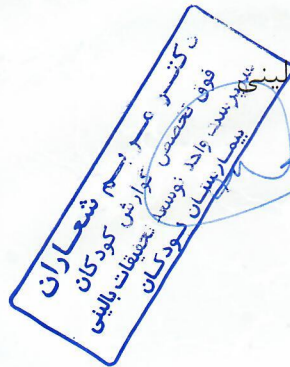 لینی
دکتر مریم شعاران
فوق تخصص گوارش کودکان
سرپرست واحد توسعه تحقیقات بالینی
بیمارستان کودکان